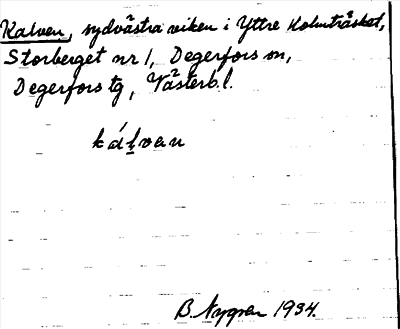 Kalven, sydvästra viken i Yttre Holmträsket,
Storberget nr 1, Degerfors sn,
Degerfors tg, Västerb.l.
kálvan
B. Nygren 1934.